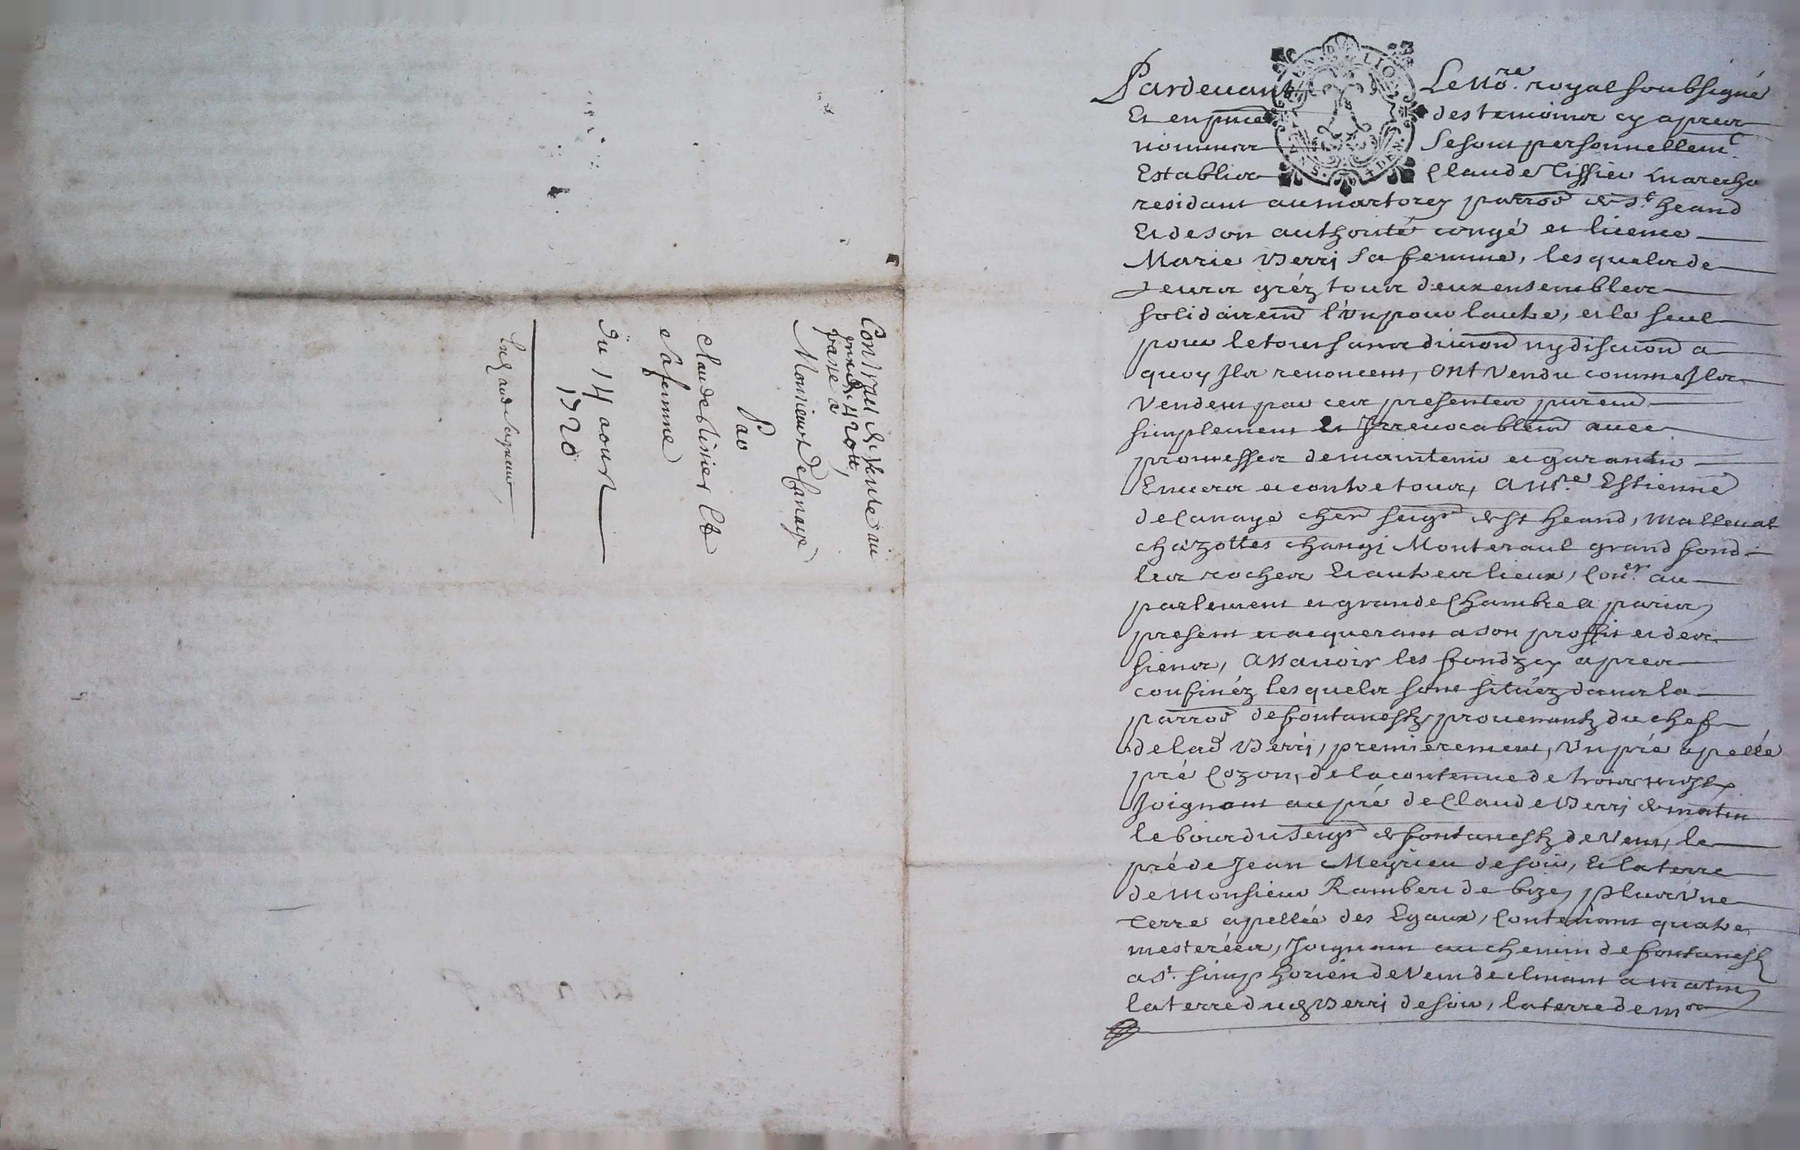 Contract de vente au
prix de 420 ll,
passé à
Monsieur De Canaye
Par
Claude Tissier Et
sa femme
Du 14 aoust
1720
Pardevant Le No.re royal soubsigné
Et en pnce des temoins cy apres
nommes Se sont personnellemt
Establis Claude Tissier marechal
residant au martorey parroê de St heand
Et de son authorité congé et licence
Marie Verri sa femme, lesquels de
leurs gréz tous deux ensembles
solidairemt l'un pour lautre, et le seul
pour le tout sans divion ny discuon a
quoy Ils renoncent, ont vendu comme Ils
vendent par ces presentes puremt
simplement Et Irrevocablemt avec
promesses de maintenir et garantir
Envers et contre tous, A Mre Estienne
de Canaye cher seigr de st heand, Malleval
chazottes changi Monteraul grand fond
les rocher Et autres lieux, Coner au
parlement et grande Chambre a paris,
present et acquerant a son proffit et des
siens, Assavoir les fondz cy apres
confinéz lesquels sont situéz dans la
parroê de fontanestz provenantz du chef
de lad Verri, premierement, Un pré apellé
pré Cozon, de la contenue de trois
Joignant au pré de Claude Verri de matin
le bois du seigr de fontanestz de vent, le
pré de Jean Meyrieu de soir, Et la terre
de Monsieur Rambert de bize, plus Une
Terre apellée des Egaux, Contenant quatre
mesterées, Joignant au chemin de fontanestz
a st. simphorien de vent declinant a matin,
la terre dud Verri de soir, la terre de mr